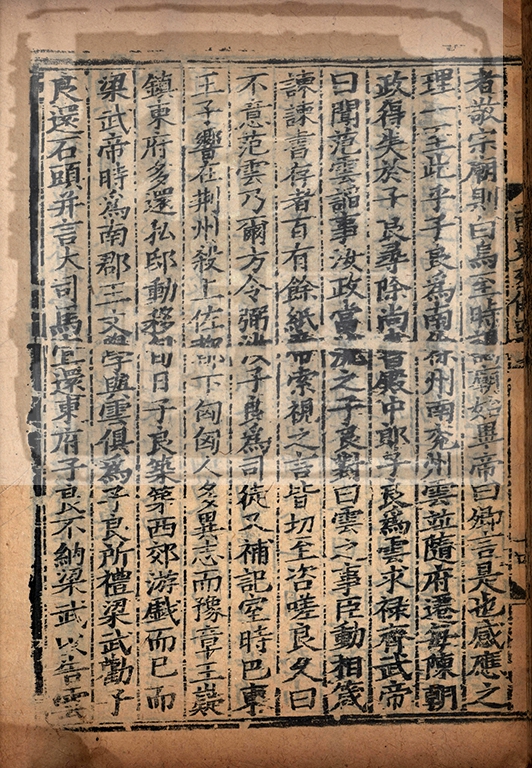 者敬宗廟則曰烏至時謁廟始畢帝曰卿言是也感應之
理一至此乎子良為南徐州南兖州雲並隨府遷每陳朝
政得失於子良尋除尚書殿中郎子良為雲求祿齊武帝
曰聞范雲諂事汝政當流之子良對曰雲之事臣動相箴
諫諫書存者百有餘紙帝索視之言皆切至咨嗟良久曰
不意范雲乃爾方令弼汝子良為司徒又補記室時巴東
王子響在荆州殺上佐都下匈匈人多異志而豫章王嶷
鎮東府多還私邸動移旬日子良築第西郊游戲而已而
梁武帝時為南郡王文學與雲俱為子良所禮梁武勸子
良還石頭并言大司馬宜還東府子良不納梁武以告雲